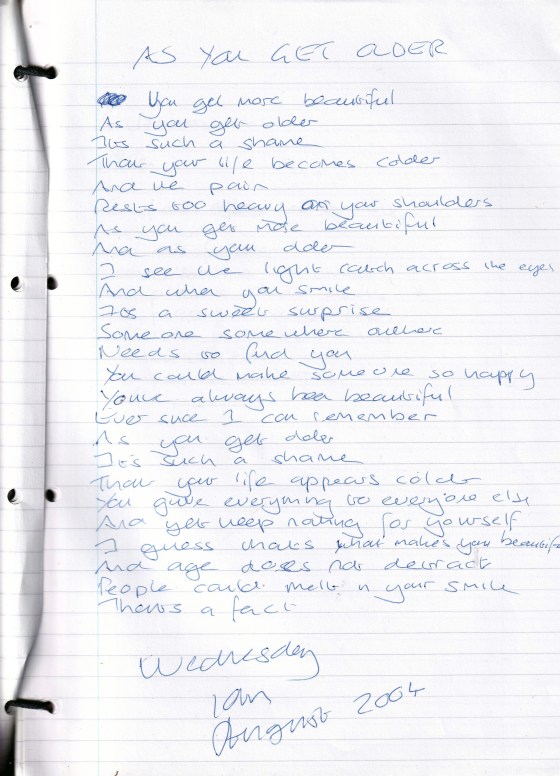 AS YOU GET OLDER
You get more beautiful
As you get older
It's such a shame
That your life becomes colder
And the pain
Rests too heavy on your shoulders
As you get more beautiful
And as you older
I see the light catch across the eyes
And when you smile
It's a sweet surprise
Someone somewhere out there
Needs to find you
You could make someone so happy
You've always been beautiful
Ever since I can remember
As you get older
It's such a shame
That your life appears colder
You give everything to everyone else
And yet keep nothing for yourself
I guess thats what makes you beautiful
And age does not detract
People could melt in your smile
Thats a fact
Wednesday
August 2004